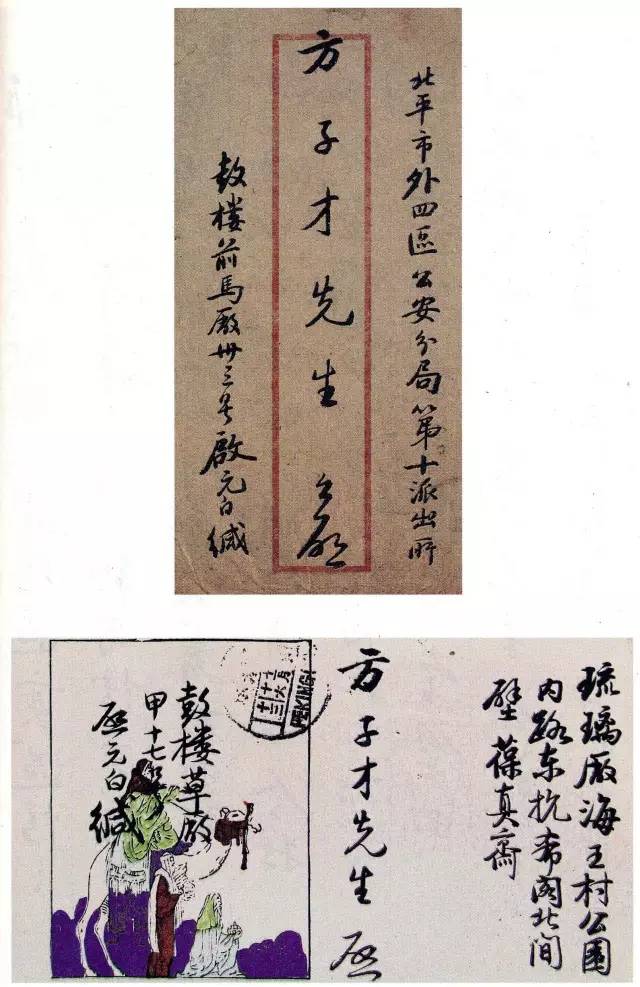 北平市外四區公安分局第十派出所
方子才先生 台啟
鼓楼前馬厰卅三号啟元白緘
琉璃厰海王村公園
内路东抗希阁北间
壁葆真斋
方子才先生 启
鼓楼草厰
甲十七号
启元白緘
PEKING